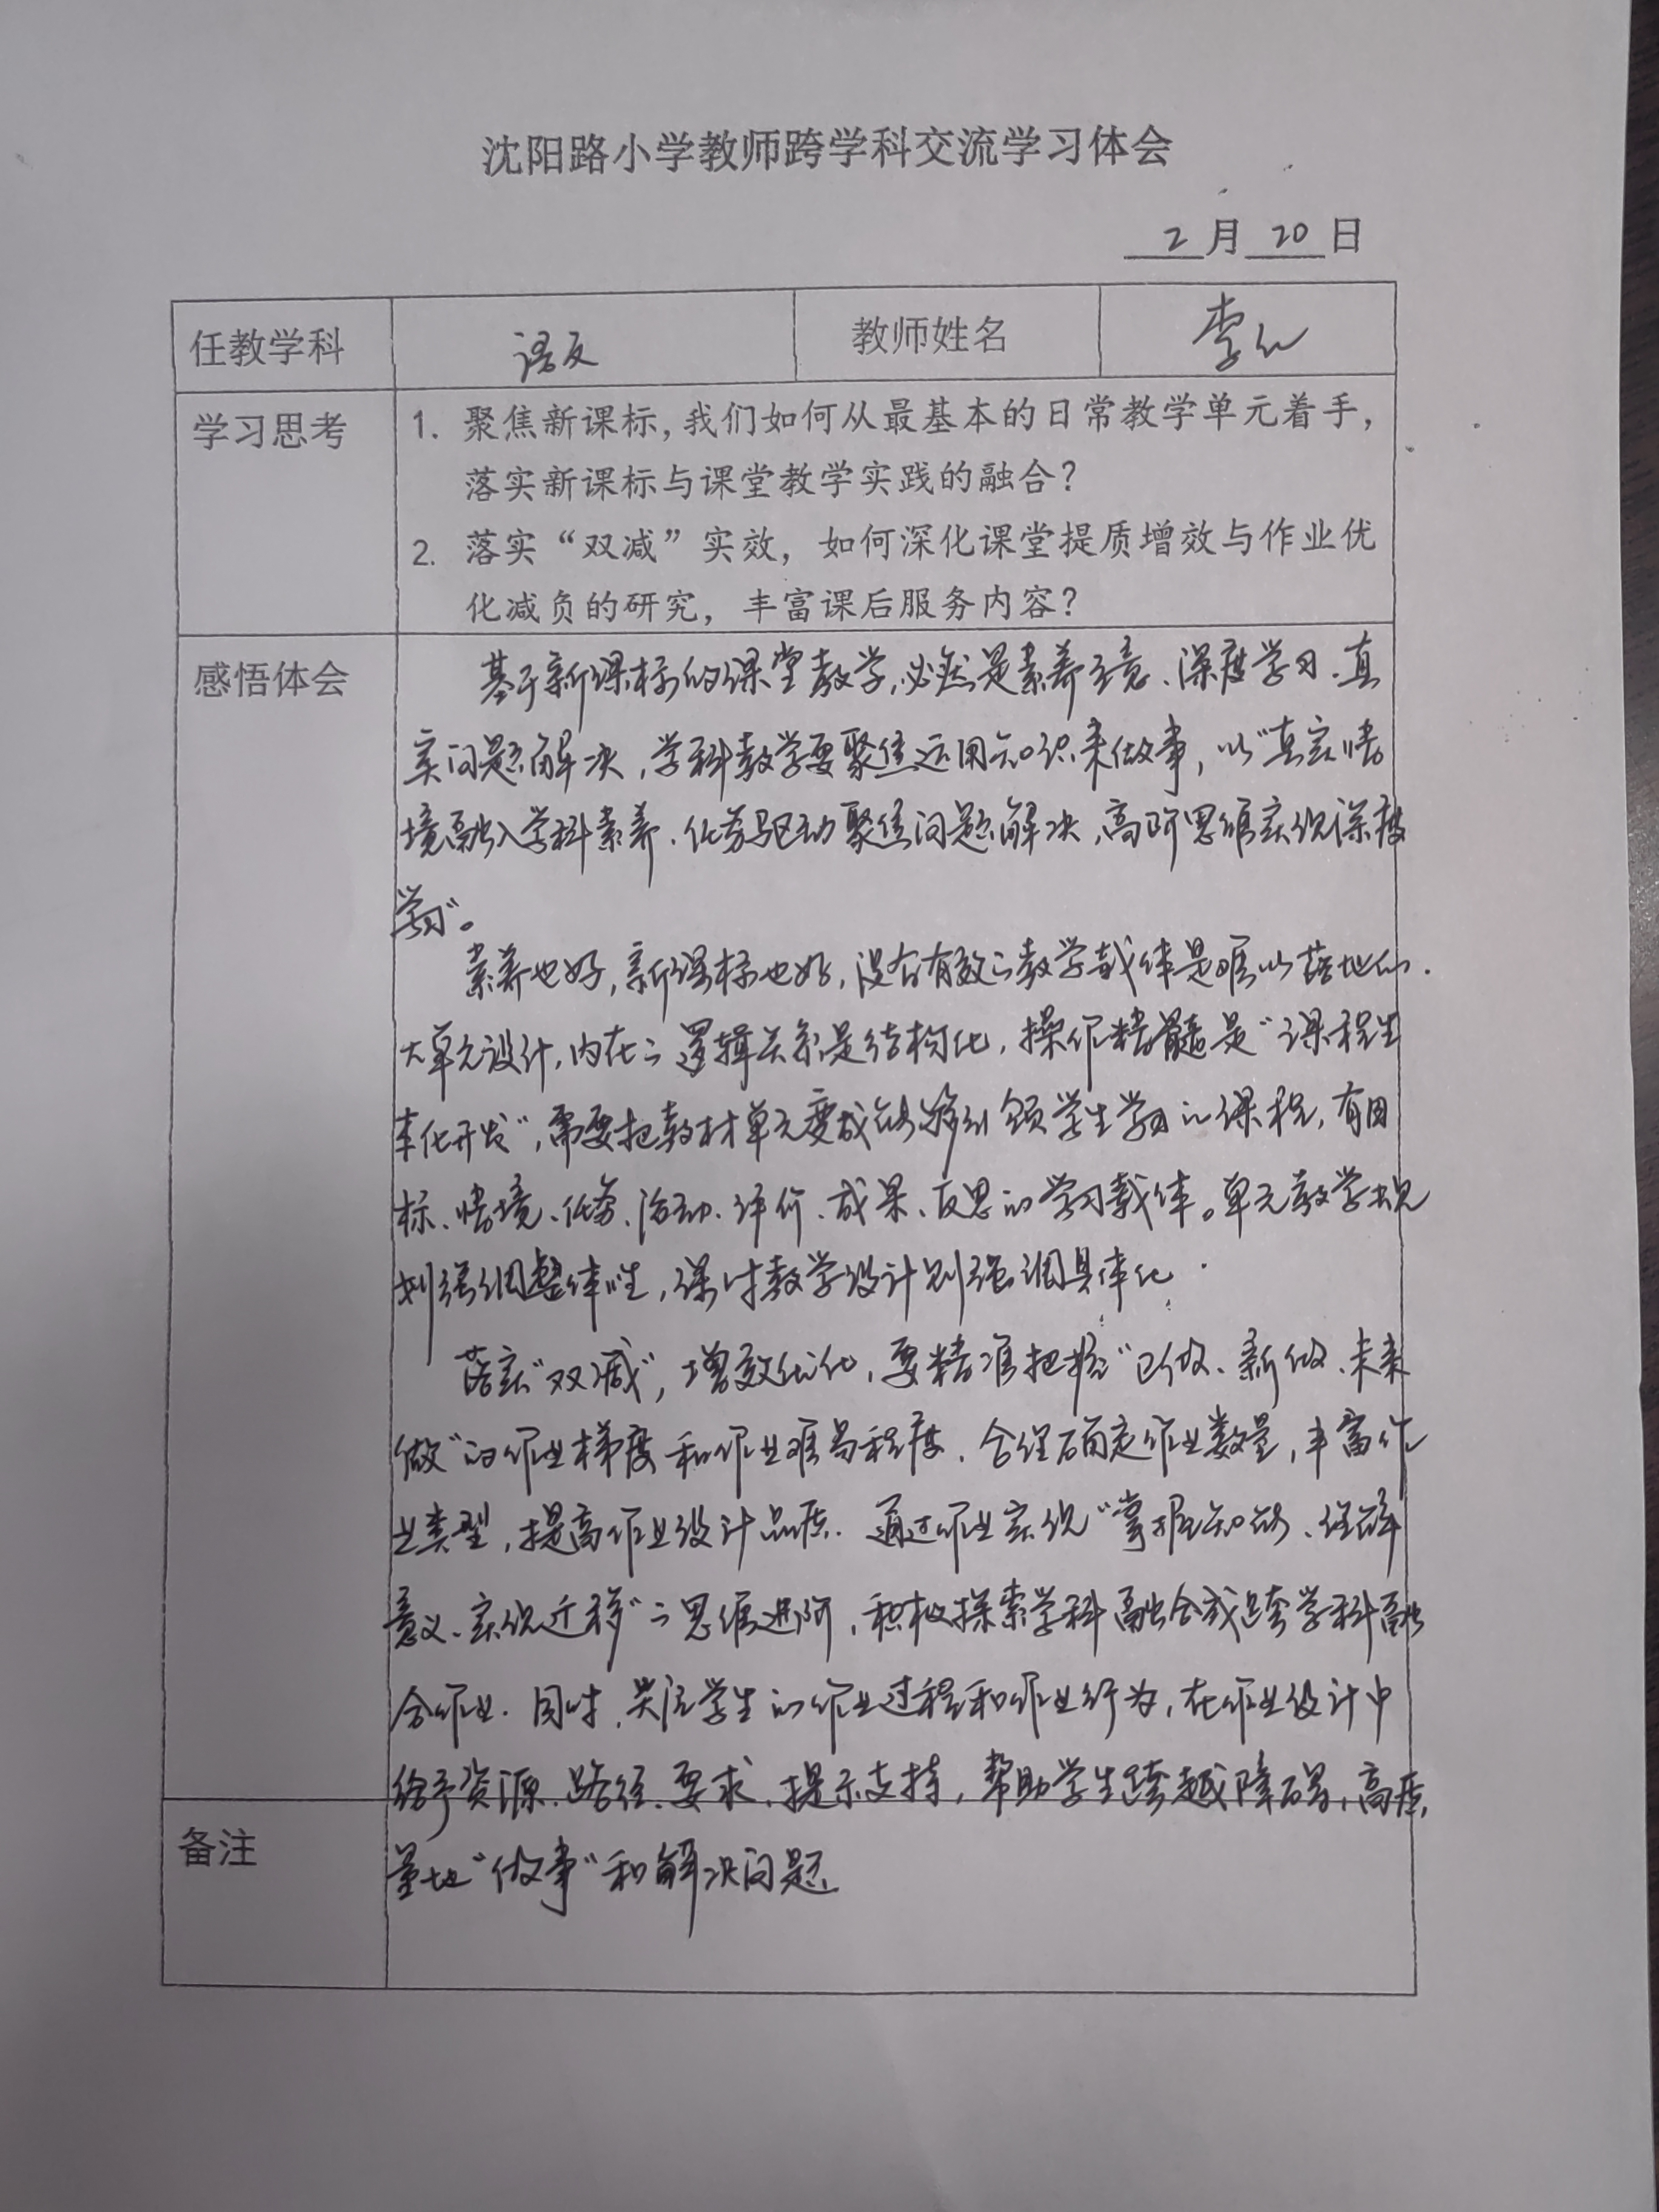 沈阳路小学教师跨学科交流学习体会
2月20日
任教学科 语文 教师姓名 李
学习思考
1. 聚焦新课标,我们如何从最基本的日常教学单元着手,
落实新课标与课堂教学实践的融合?
2. 落实“双减”实效，如何深化课堂提质增效与作业优
化减负的研究，丰富课后服务内容?
感悟体会
基于新课标的课堂教学,必然是素养立意、深度学习、真
实问题解决,学科教学要聚焦运用知识来做事,以“真实情
境融入学科素养、任务驱动聚焦问题解决、高阶思维实现深度
学习”。
素养也好,新课标也好,没有有效的教学载体是难以落地的.
大单元设计,内在的逻辑关系是结构化,操作精髓是“课程生
本化开发”,需要把教材单元变成能够引领学生学习的课程,有目
标、情境、任务、活动、评价、成果、反思的学习载体。单元教学规
划强调整体性,课时教学设计则强调具体化.
落实“双减”,增效优化,要精准把握“已做、新做、未来
做”的作业梯度和作业难易程度、合理确定作业数量,丰富作
业类型,提高作业设计品质.通过作业实现“掌握知能、理解
意义、实现迁移”的思维进阶,积极探索学科融合或跨学科融
合作业.同时,关注学生的作业过程和作业行为,在作业设计中
给予资源、路径、要求、提示支持,帮助学生跨越障碍,高质
量地“做事”和解决问题.
备注